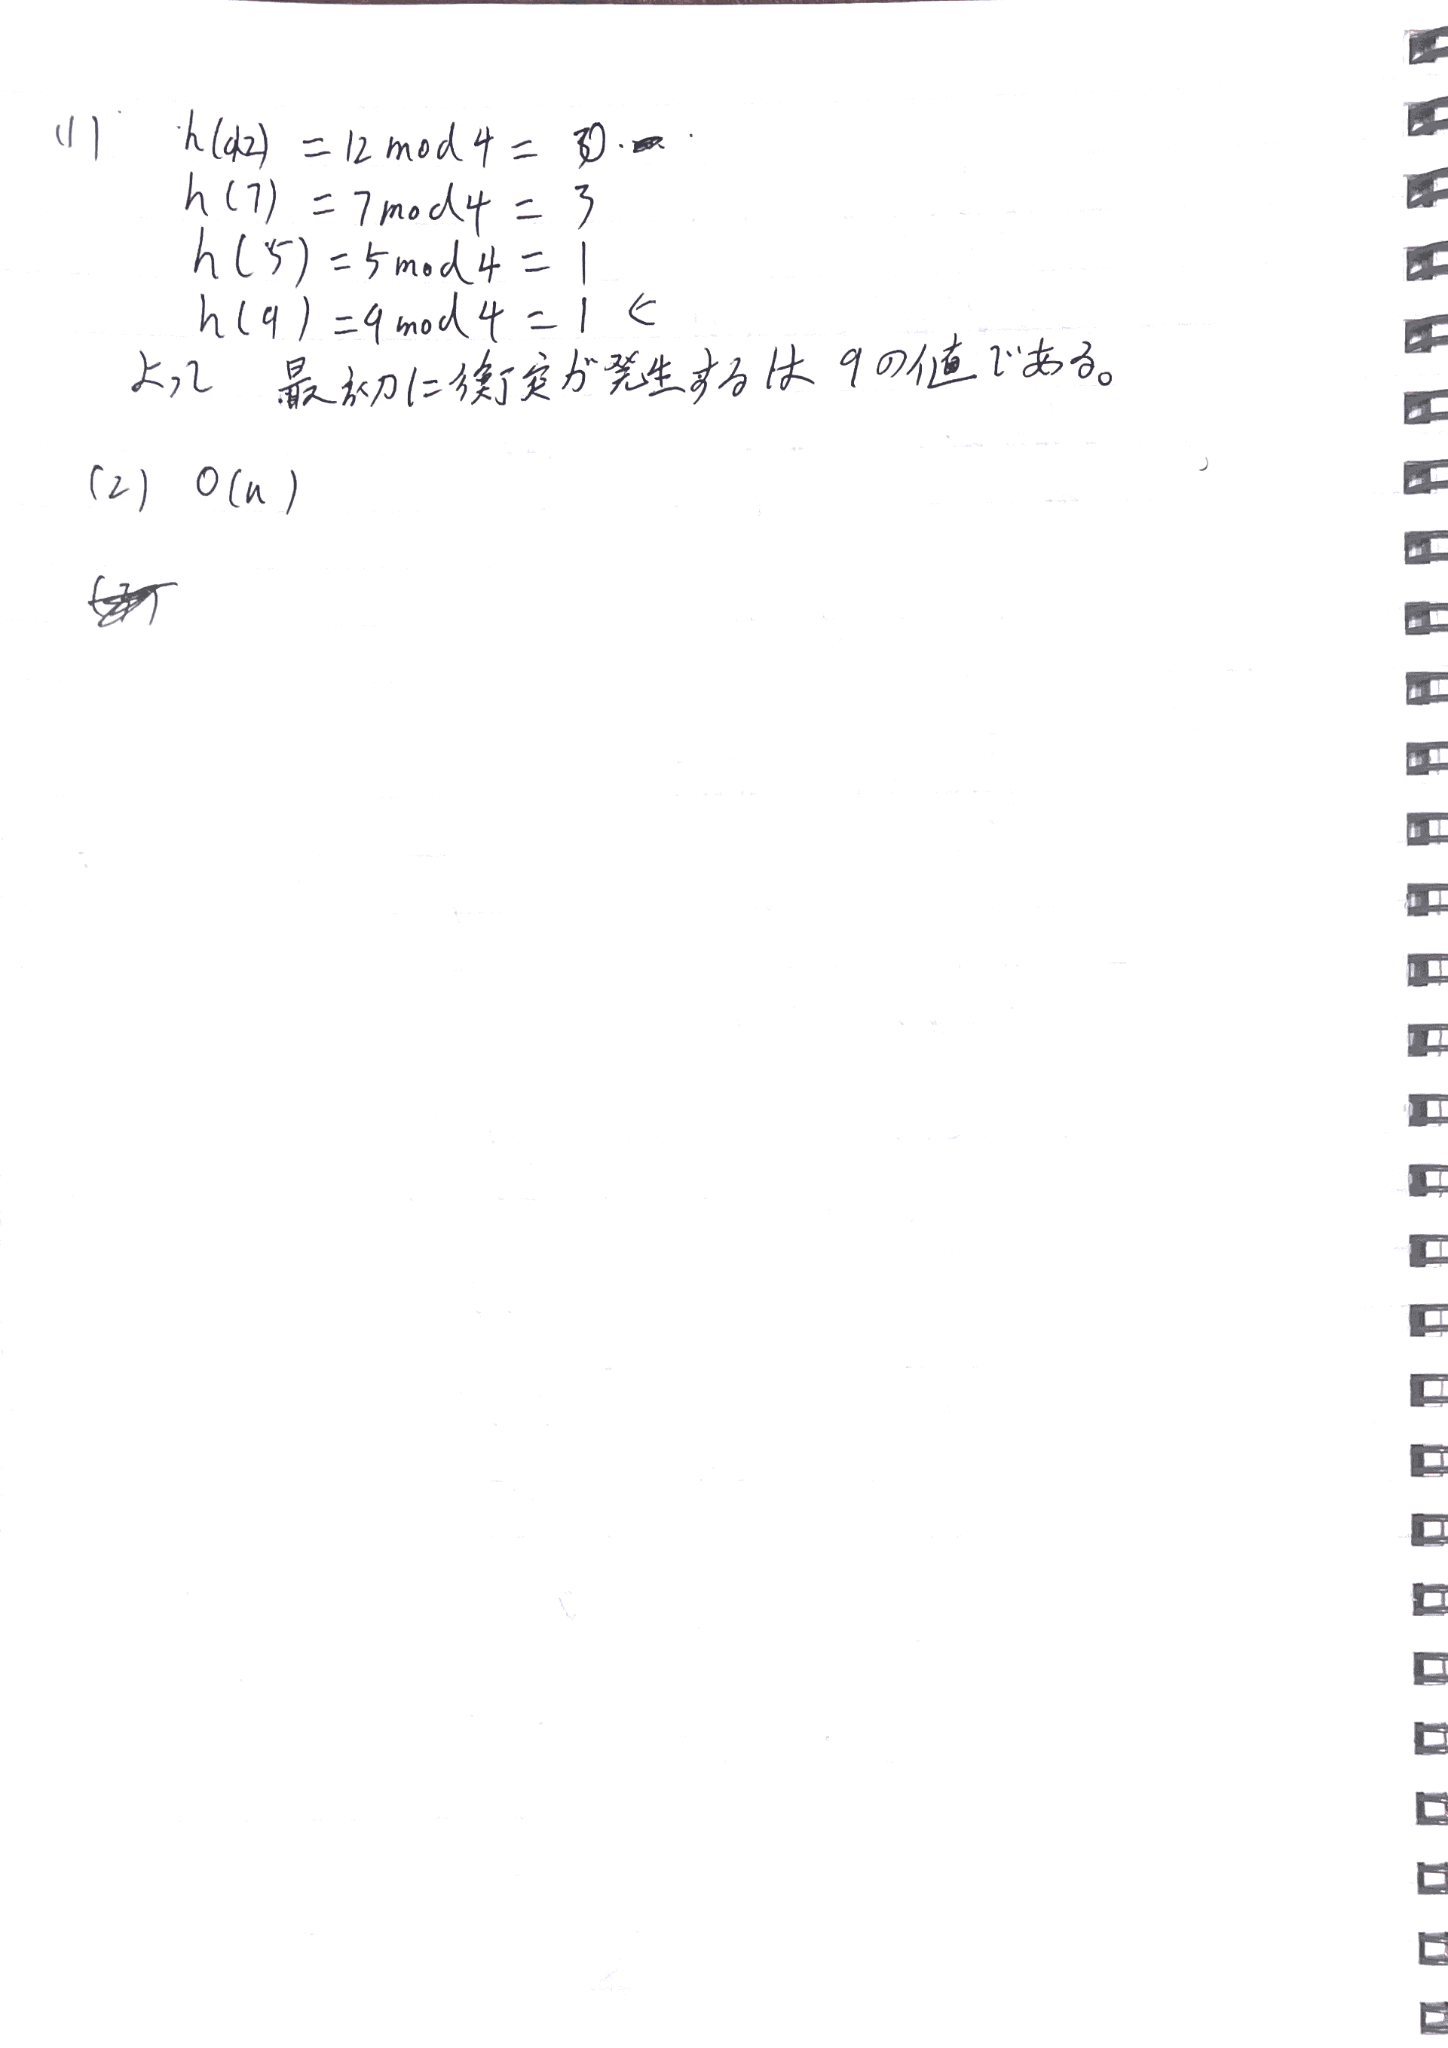 (1) h(12) = 12 mod 4 = 0.
h(7) = 7 mod 4 = 3
h(5) = 5 mod 4 = 1
h(9) = 9 mod 4 = 1 ←
よって 最初に衝突が発生するは 9の値である。
(2) O(n)